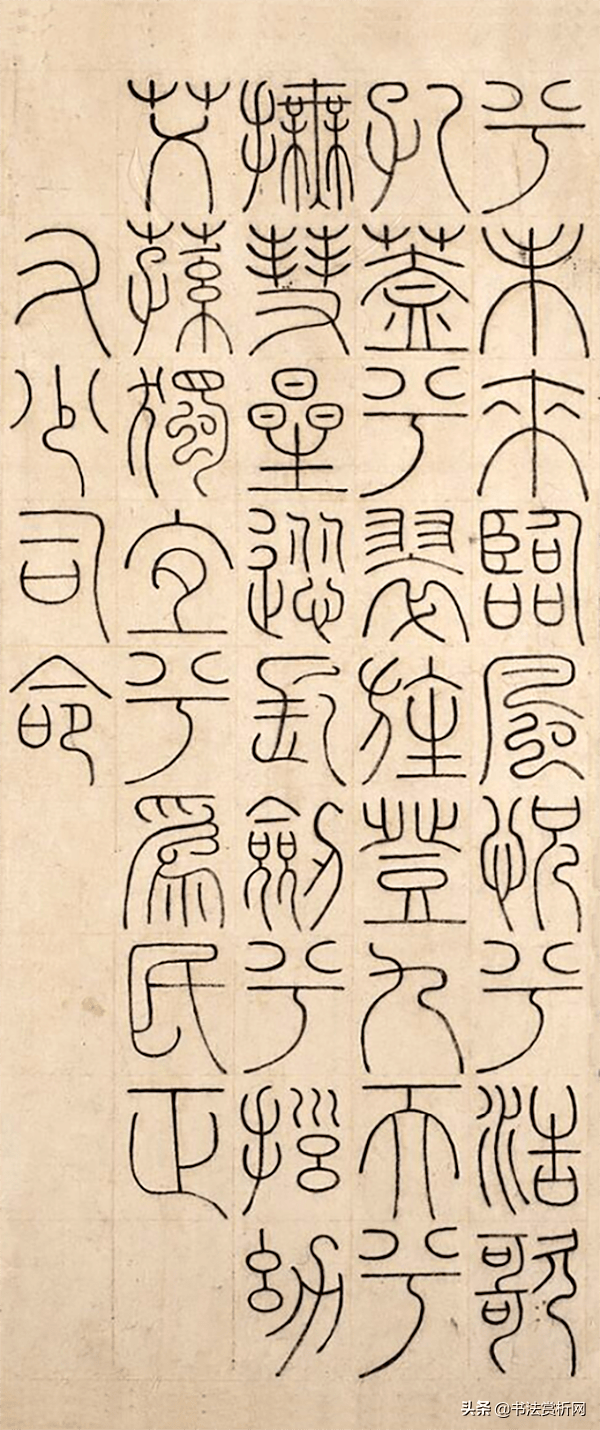 兮未來臨風怳兮浩歌
孔蓋兮翠旌登九天兮
撫彗星慫長劍兮擁幼
艾蓀獨宜兮爲民正
又少司命
头条 @书法赏析网